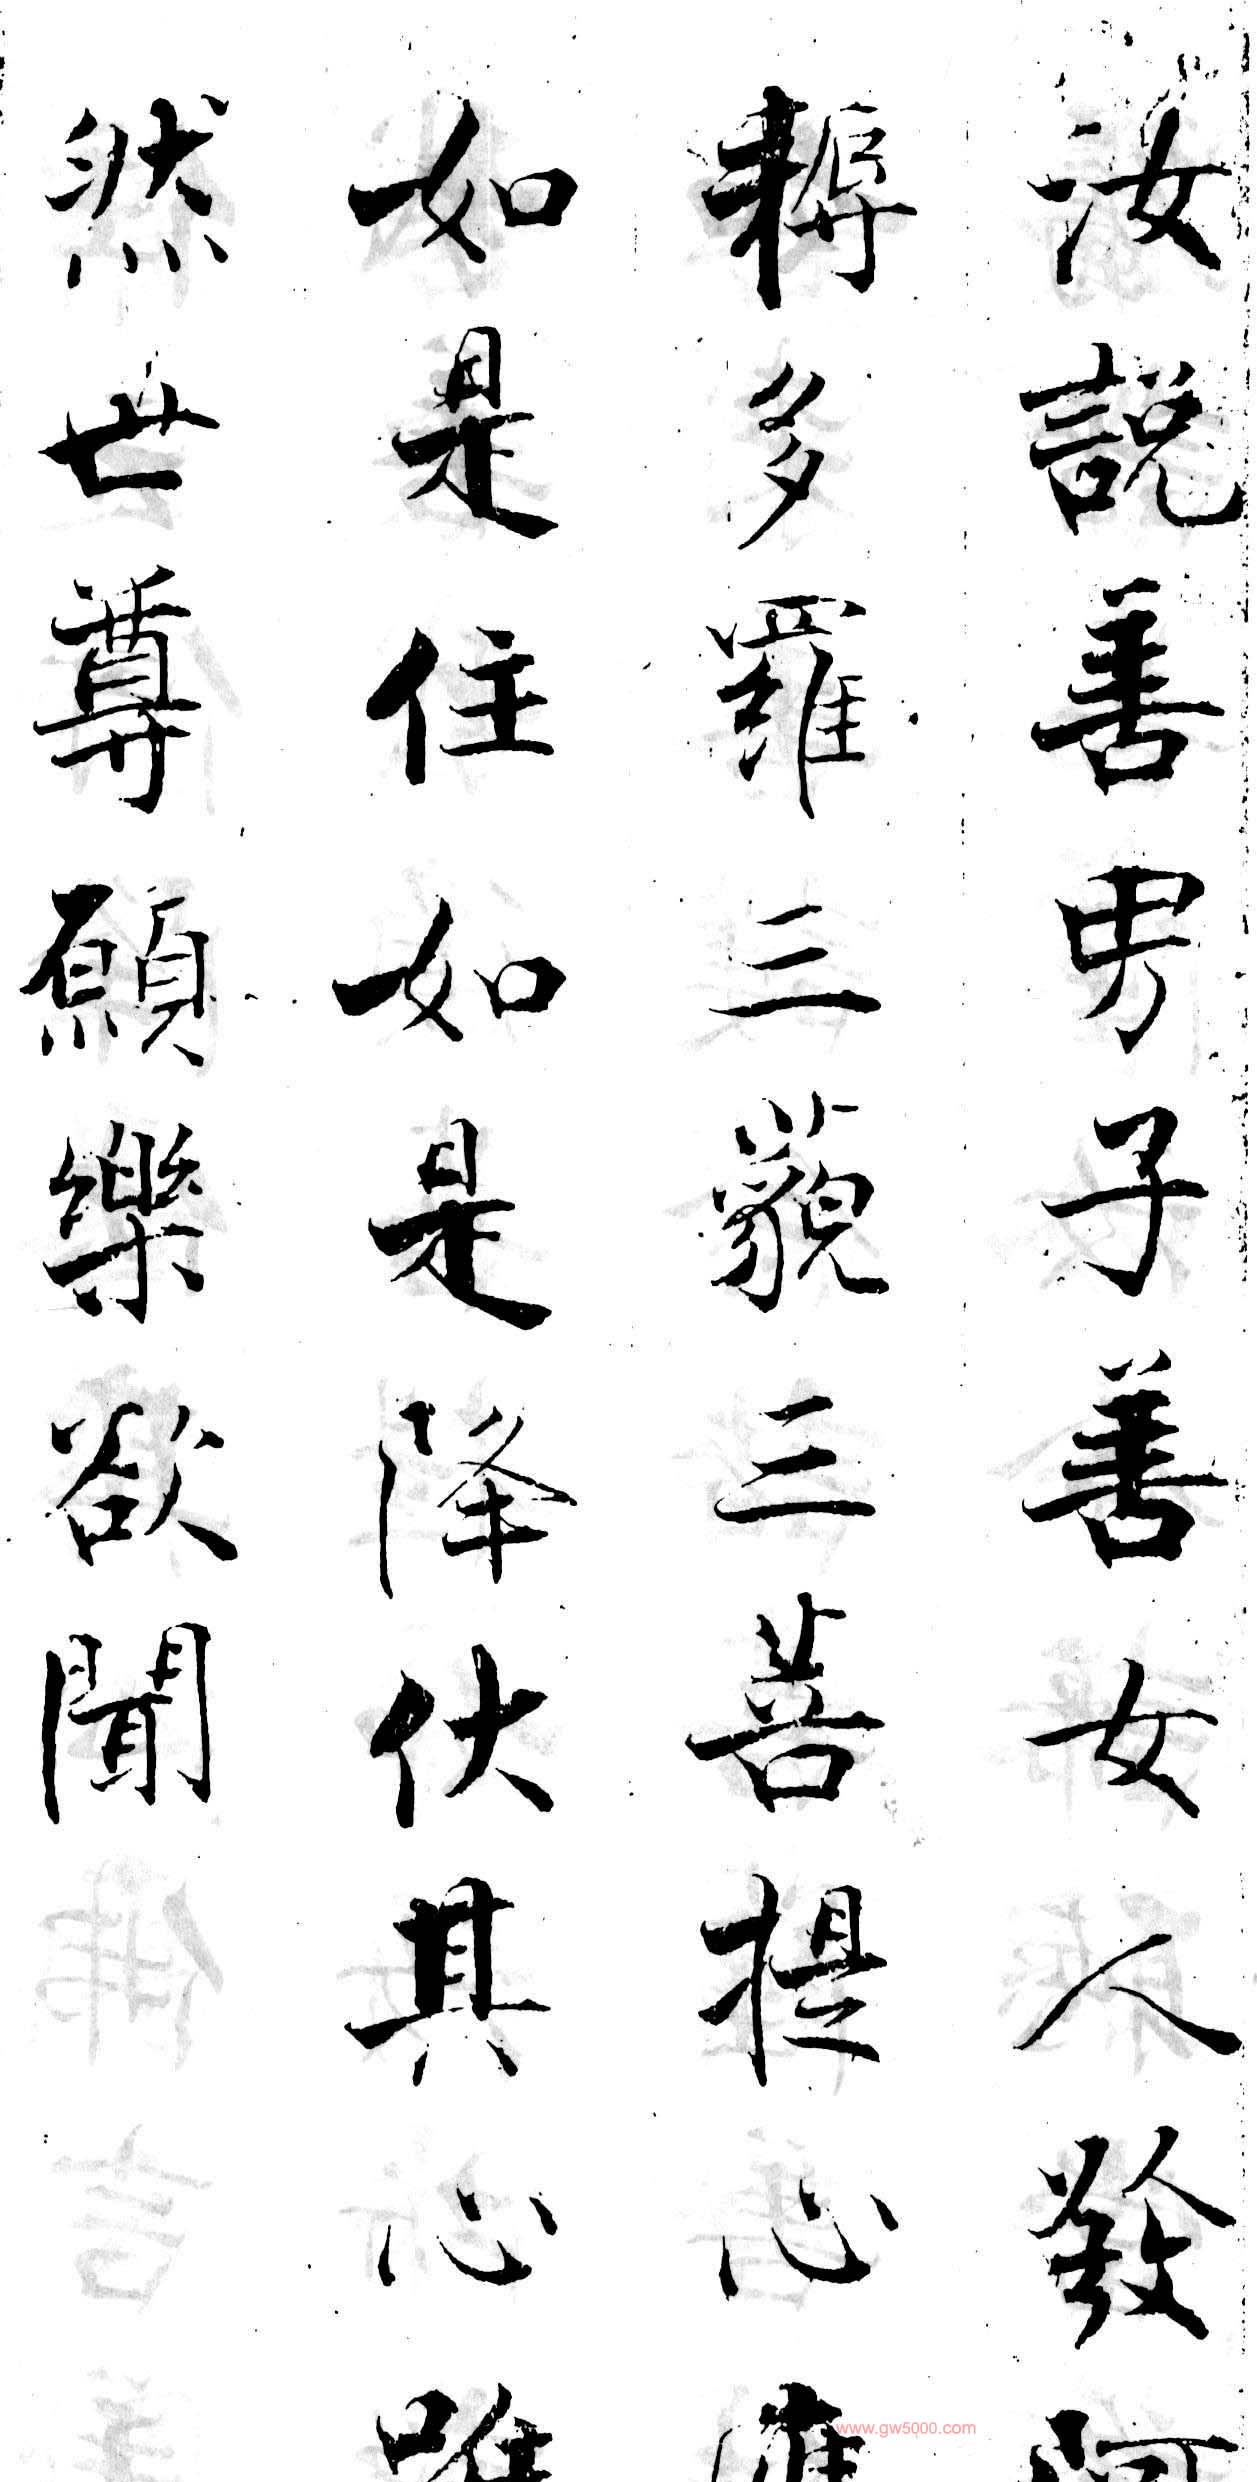 汝說善男子善女人發阿
耨多羅三藐三菩提心應
如是住如是降伏其心唯
然世尊願樂欲聞
www.gw5000.com